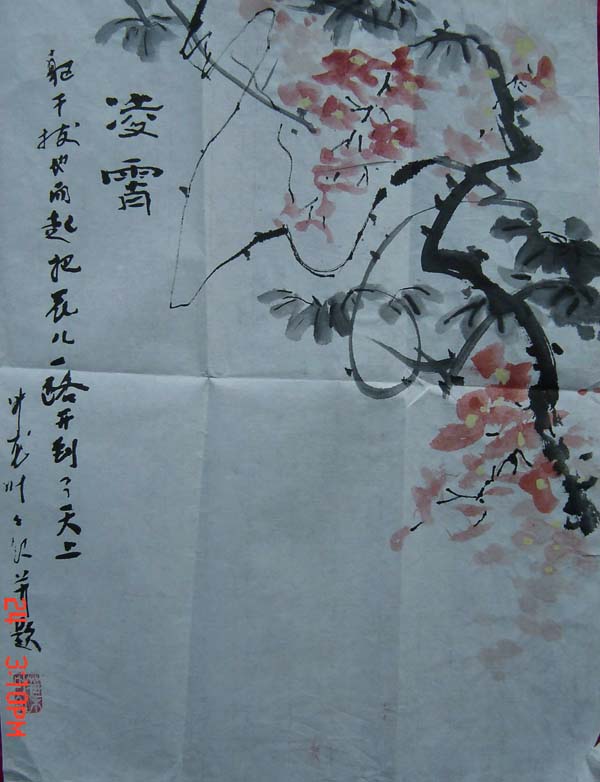 凌霄
躯干拔地而起把花儿一路开到了天上
并题
24 3:10PM